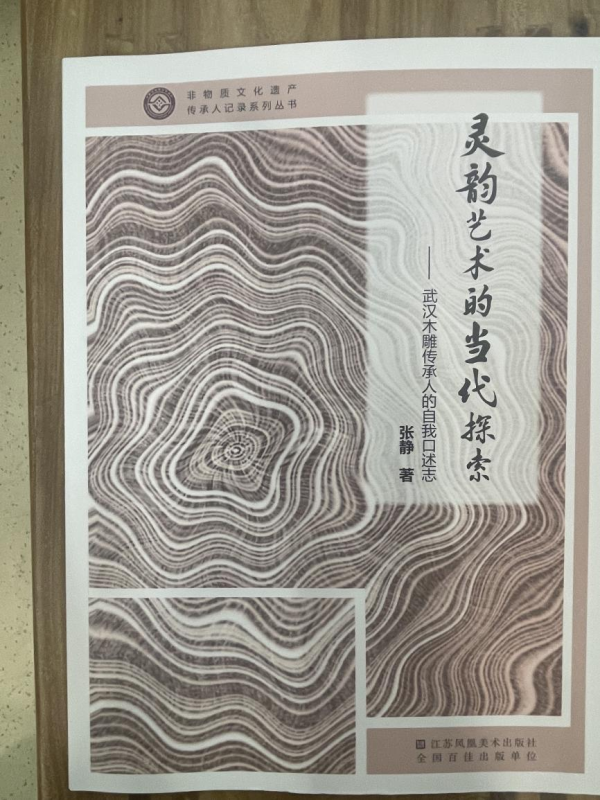 非物质文化遗产
传承人记录系列丛书
灵韵艺术的当代探索
——武汉木雕传承人的自我口述志
张静 著
江苏凤凰美术出版社
全国百佳出版单位